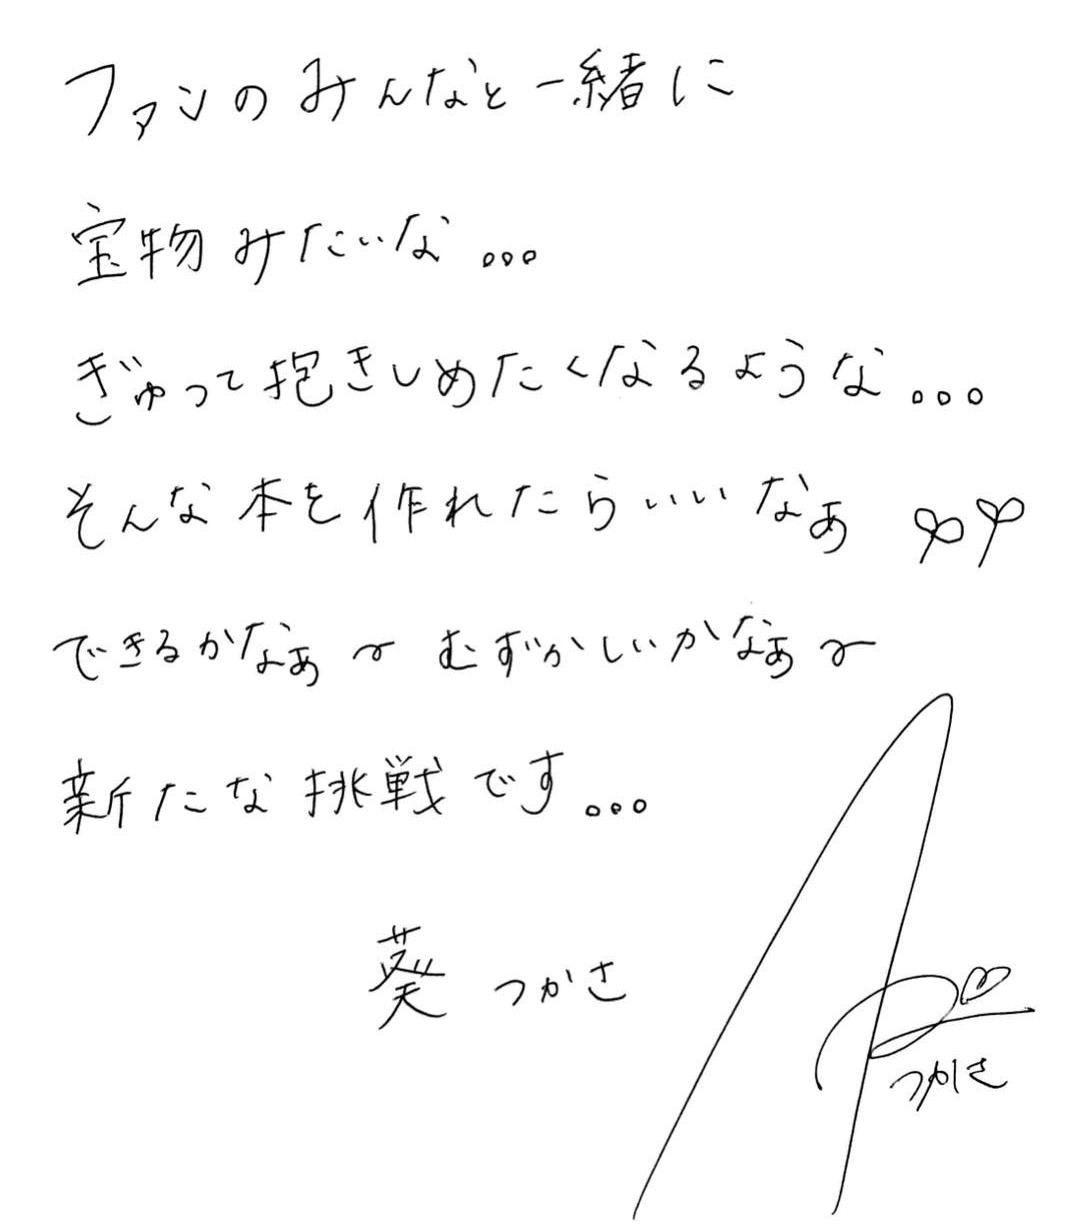 ファンのみんなと一緒に
宝物みたいな...
ぎゅって抱きしめたくなるような...
そんな本を作れたらいいなぁ
できるかなぁ〜 むずかしいかなぁ〜
新たな挑戦です...
葵 つかさ
つかさ